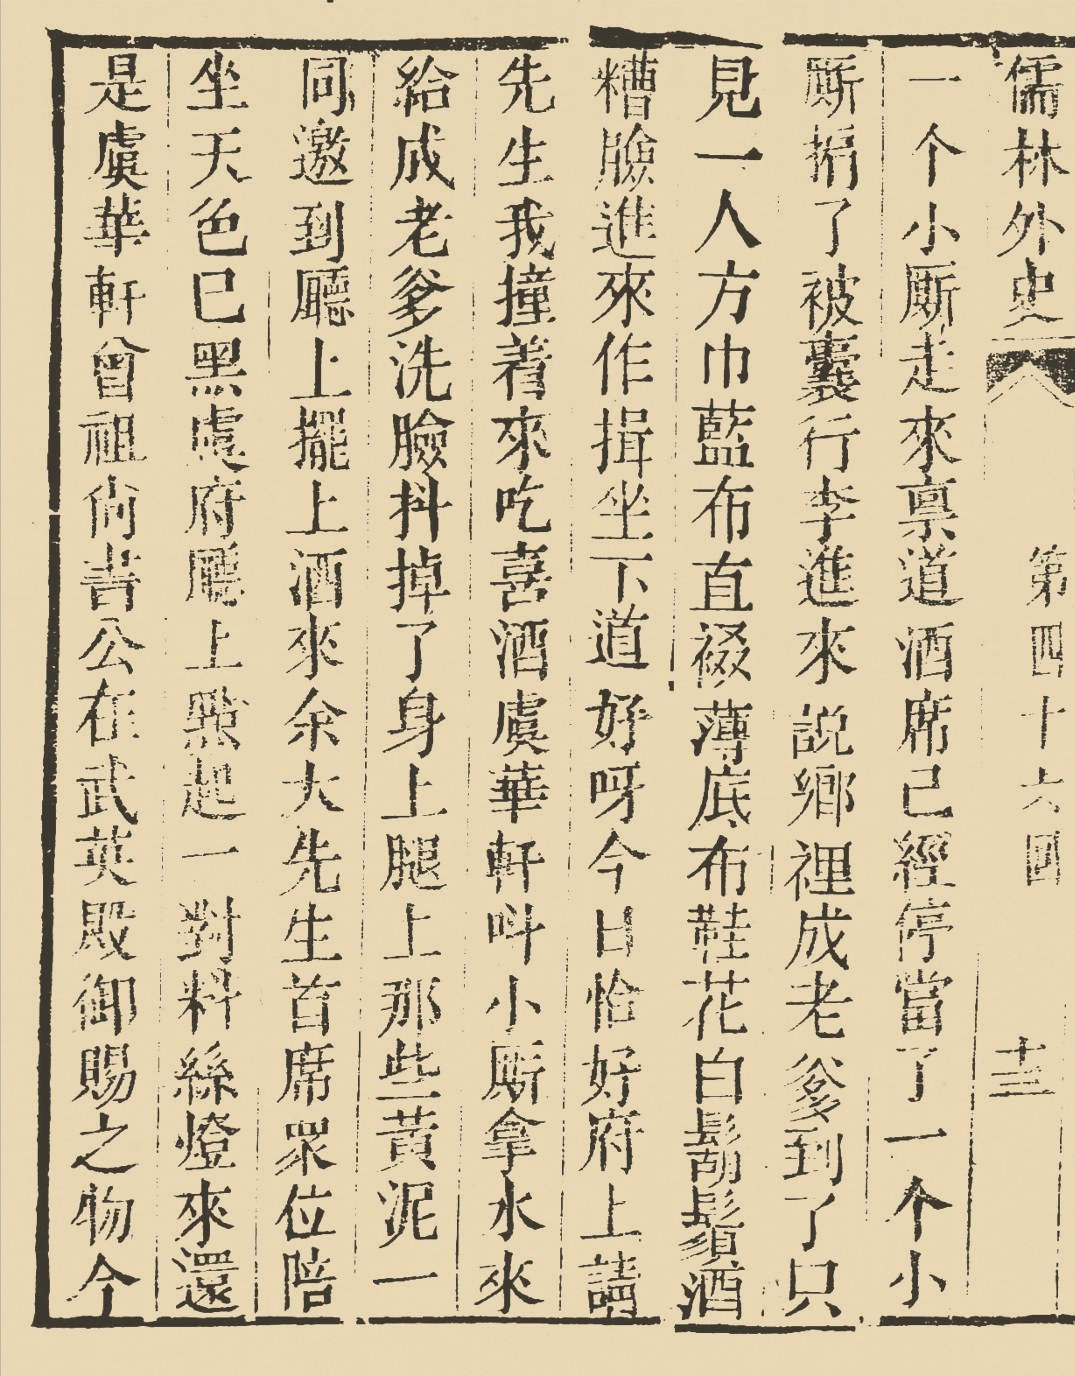 儒林外史 第四十六回 十三
一个小厮走來禀道酒席已經停當了一个小
厮捎了被囊行李進來說鄉裡成老爹到了只
見一人方巾藍布直裰薄底布鞋花白鬍鬚酒
糟臉進來作揖坐下道好呀今日恰好府上請
先生我撞着來吃喜酒虞華軒呌小厮拿水來
給成老爹洗臉抖掉了身上腿上那些黃泥一
同邀到廳上擺上酒來余大先生首席衆位陪
坐天色已黑虞府廳上點起一對料絲燈來還
是虞華軒曾祖尙書公在武英殿御賜之物今